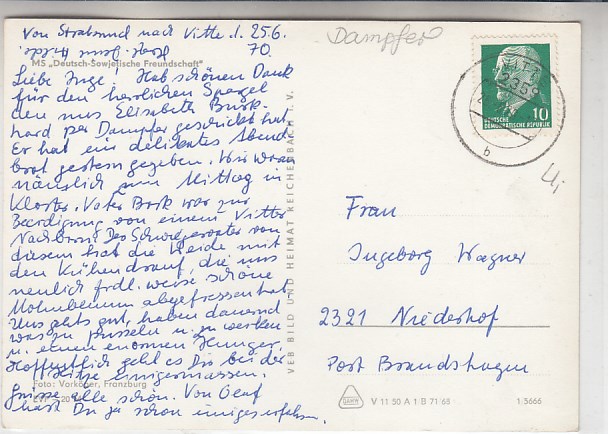 Von Stralsund nach Vitte d. 25.6.
70.
Dampfer
MS „Deutsch-Sowjetische Freundschaft“
Liebe Inge! Hab schönen Dank
für den herrlichen Spargel
den uns Elisabeth Burk-
hard per Dampfer geschickt hat.
Er hat ein delikates Abend
brot gestern gegeben. Wir waren
nämlich zum Mittag in
Kloster. Vater war zur
Beerdigung von einem Vitter
Nachbarn. Des Schwiegervater von
diesem hat die Weide mit
den Kühen drauf, die uns
neulich frdl. weise schöne
abgefressen hat.
Uns gehts gut, haben dauernd
was zu pusseln u. zu werken
u. einen enormen Hunger.
Hoffentlich geht es Dir bei der
Hitze einigermassen.
Grüsse alle schön. Von Olaf
hast Du ja schon einiges erfahren.
Foto: Vorköper, Franzburg
VEB BILD UND HEIMAT REICHENBACH I. V.
2359
b
10
DEUTSCHE
DEMOKRATISCHE REPUBLIK
Frau
Ingeborg Wagner
2321 Niederhof
Post Brandshagen
V 11 50 A 1 B 71/68
1-5666